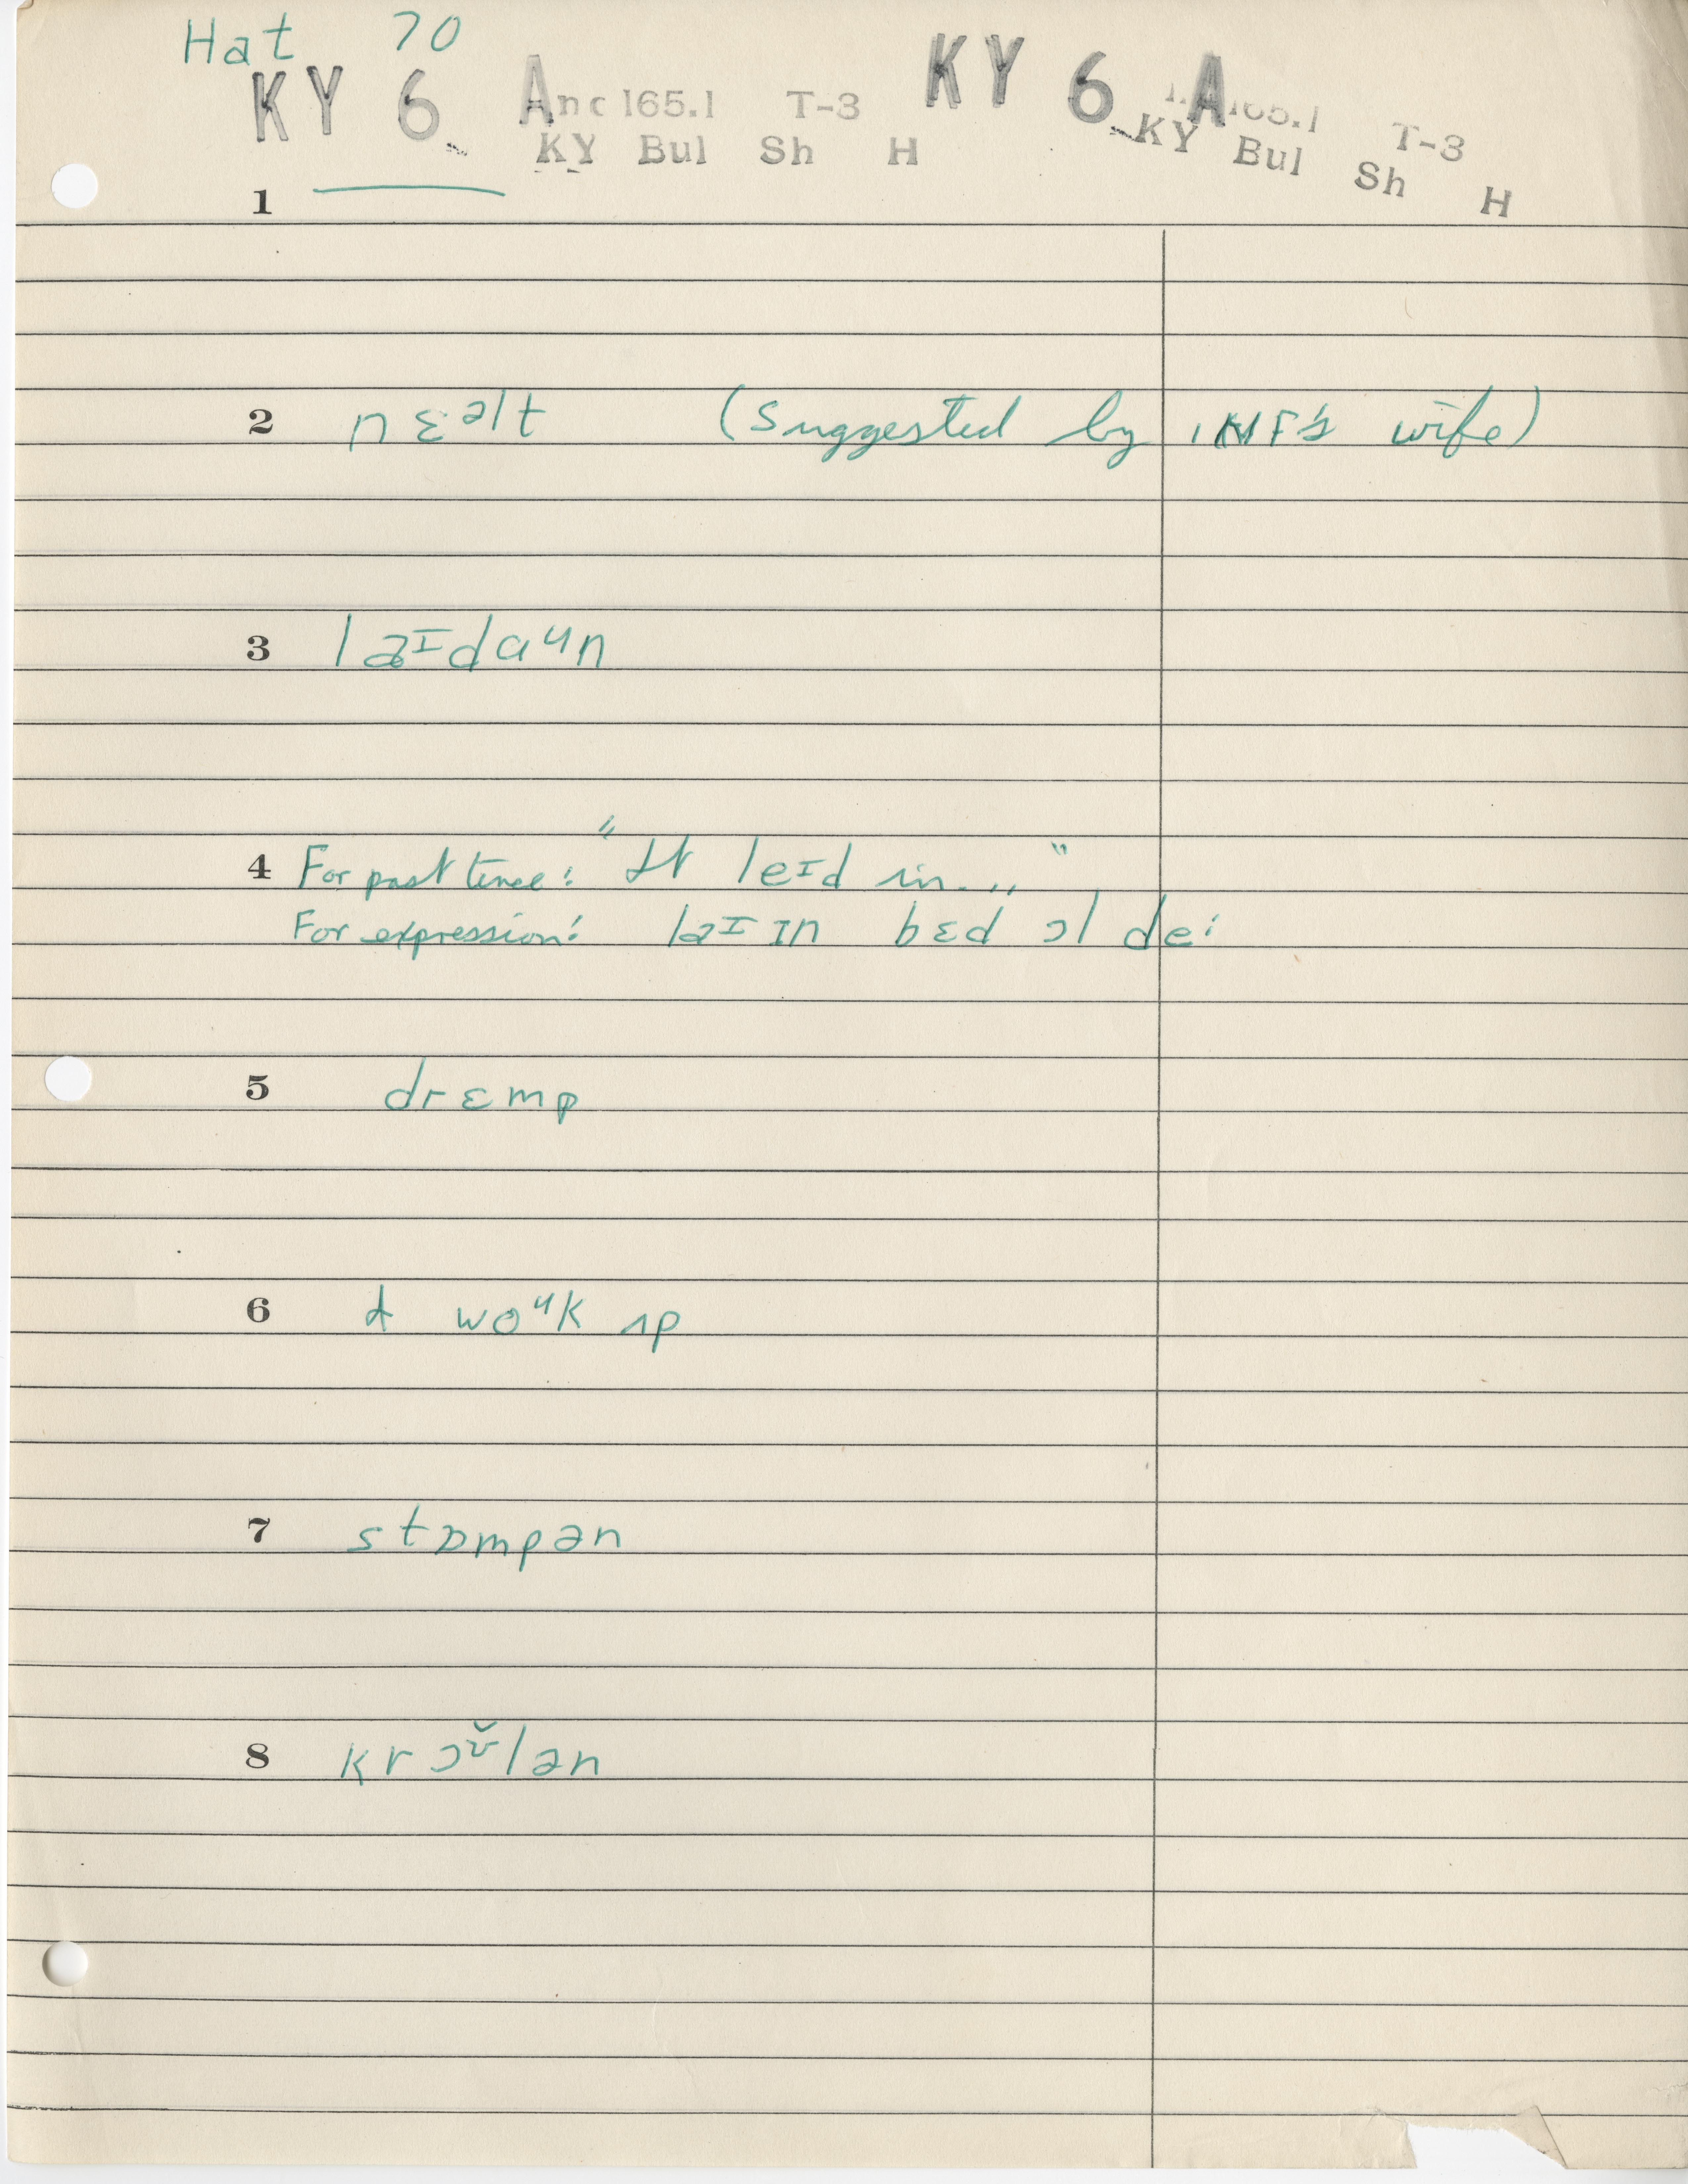 Hat 70
KY 6 A KY 6 A
Anc 165.1 T-3 165.1 T-3
KY Bul Sh H KY Bul Sh H
1 ———
2 nɛᵊlt (Suggested by INF's wife)
3 laᶦdaᶸn
4 For past tence: "It leᶦd in..."
For expression: laᶦ ɪn bɛd ɔl de·
5 drɛmp
6 woᶸk ʌp
7 stɒmpən
8 krɔᶷ̆lən